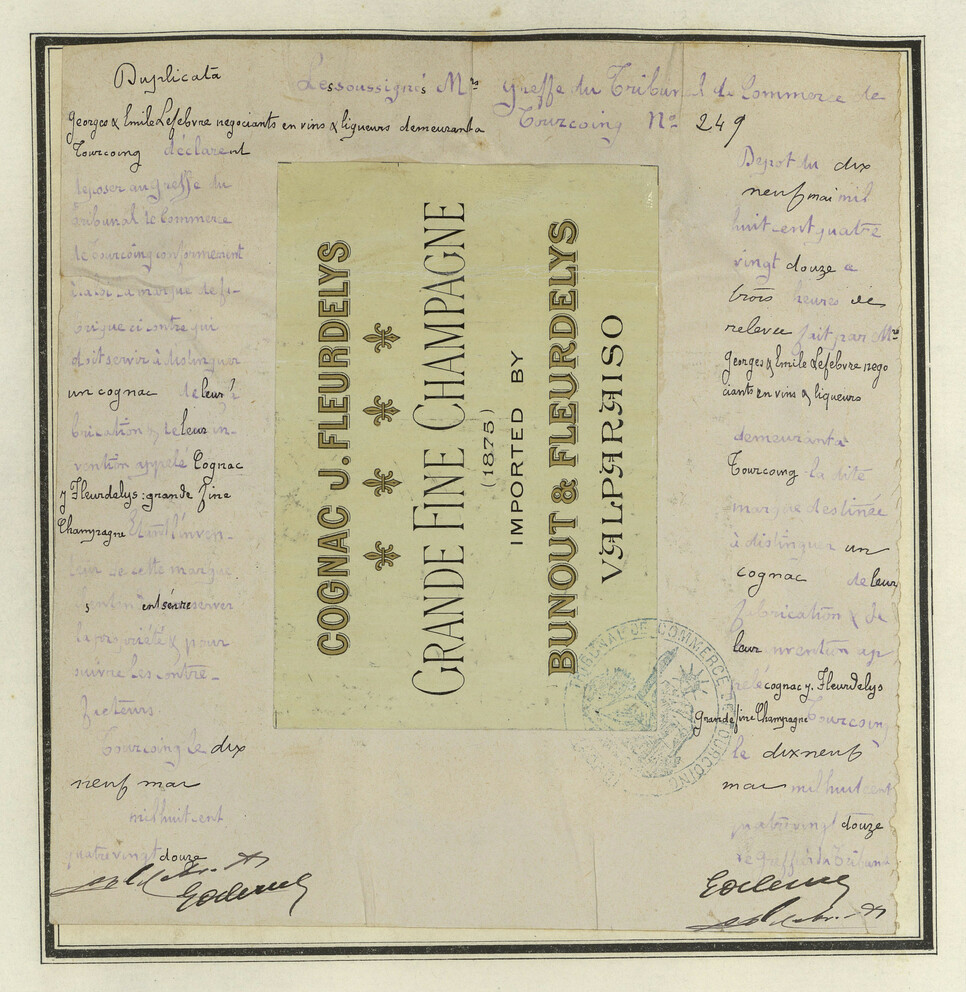 Duplicata
Les soussignés Mrs
Georges & Emile Lefebvre negociants en vins & liqueurs demeurant a
Tourcoing déclarent
deposer au greffe du
Tribunal de Commerce
de Tourcoing conformement
à la loi la marque de fa-
brique ci contre qui
doit servir à distinguer
un cognac de leur fa
brication & de leur in-
vention appelé Cognac
J Fleurdelys : grande fine
Champagne Etant l'inven-
teur de cette marque
entend s'en reserver
la propriété & pour
suivre les contre-
facteurs.
Tourcoing le dix
neuf mai
mil huit cent
quatre vingt douze
COGNAC J. FLEURDELYS
GRANDE FINE CHAMPAGNE
(1875)
IMPORTED BY
BUNOUT & FLEURDELYS
VALPARAISO
TRIBUNAL DE COMMERCE DE TOURCOING
Greffe du Tribunal de Commerce de
Tourcoing No 249
Depot du dix
neuf mai mil
huit cent quatre
vingt douze a
trois heures de
relevée fait par Mrs
Georges & Emile Lefebvre nego
ciants en vins & liqueurs
demeurant a
Tourcoing la dite
marque destinée
à distinguer un
cognac de leur
fabrication & de
leur invention ap
pelé cognac J. Fleurdelys
grande fine Champagne Tourcoing
le dix neuf
mai mil huit cent
quatre vingt douze
le Greffier du Tribunal